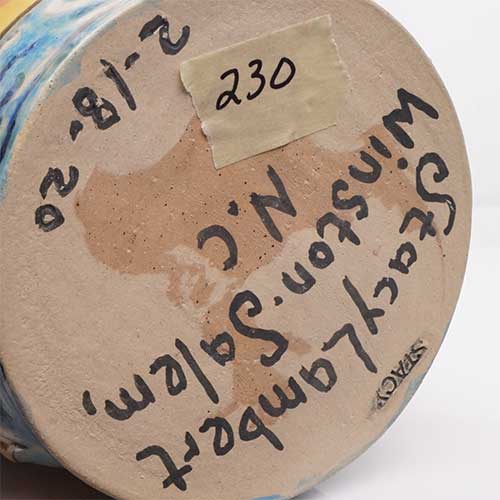 230
Stacy Lambert
Winston-Salem,
N.C
2-18-20
STACY